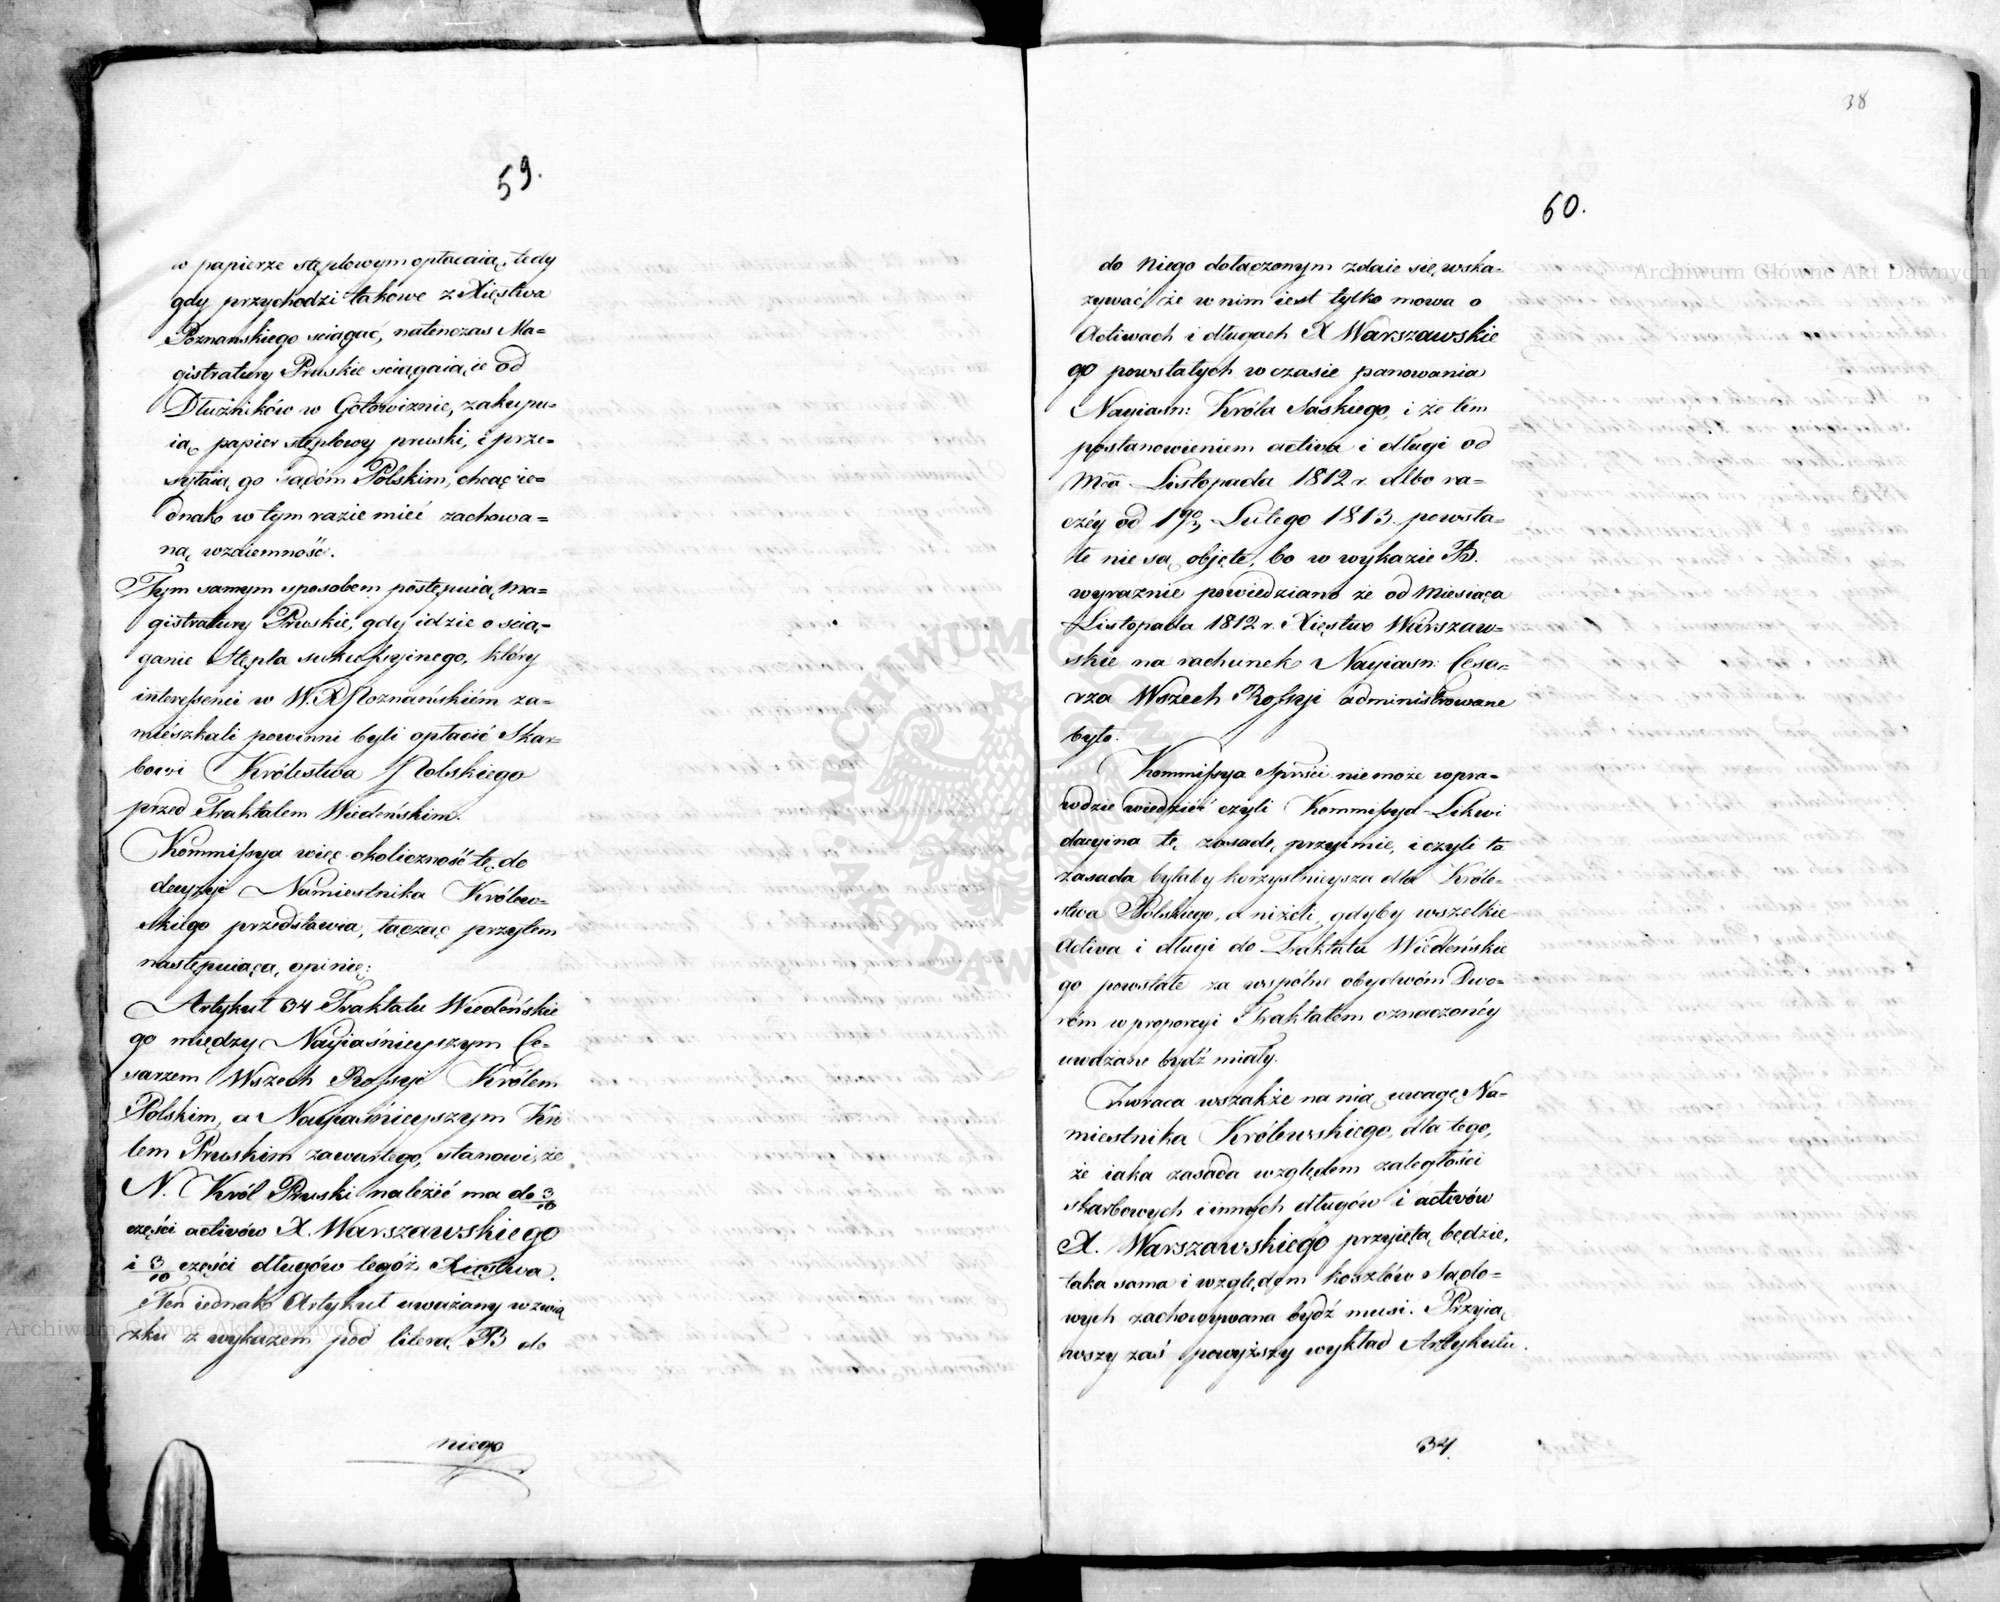 59.
w papierze stęplowym opłacaią, tedy
gdy przychodzi takowe z Xięstwa
Poznańskiego sciągać, natenczas Ma=
gistratury Pruskie sciągaią ie od
Dłużników w Gotowiznie, zakupu=
ią papier stęplowy pruski, i prze=
syłaią go Sądóm Polskim, chcąc ie=
dnak w tym razie mieć zachowa=
ną wzaiemność.
Tym samym sposobem postępuią Ma=
gistratury Pruskie, gdy idzie o scią=
ganie Stępla sukcessyinego, który
interessenci w W. X Poznańskiém za=
miészkali powinni byli opłacić Skar=
bowi Królestwa Polskiego
przed Traktatem Wiedeńskim.
Kommissya więc okoliczność tę do
decyzyi Namiestnika Królew=
skiego przedstawia, łącząc przytem
następuiącą opinię:
Artykuł 34 Traktatu Wiedeńskie
go między Nayiaśnieyszym Ce=
sarzem Wszech Rossyi Królem
Polskim, a Nayiaśnieyszym Kró
lem Pruskim zawartego, stanowi, że
N. Król Pruski należić ma do 3/10
części activów X. Warszawskiego
i 3/10 części długów tegóż Xięstwa.
Ten iednak Artykuł uważany w związ
zku z wykazem pod literą B do
niego
38
60.
do Niego dołączonym zdaie się wska=
zywać, że w nim iest tylko mowa o
Activach i długach X Warszawskie
go powstałych w czasie panowania
Nayiasn: Króla Saskiego, i że tém
postanowieniem activa i długi od
Mca Listopada 1812 r. albo ra=
czéy od 1go Lutego 1813. powsta=
łe nie są objęte, bo w wykazie B.
wyraznie powiedziano że od Miesiąca
Listopada 1812 r. Xięstwo Warszaw=
skie na rachunek Nayiasn: Cesa=
rza Wszech Rossyi administrowane
było.
Kommissya Sprści nie może wpra=
wdzie wiedzieć czyli Kommissya Likwi
dacyina tę zasadę przyimie, i czyli ta
zasada byłaby korzystnieysza dla Króle=
stwa Polskiego, a niżeli, gdyby wszelkie
Activa i długi do Traktatu Wiedeńskie
go powstałe za wspólne obydwóm Dwo=
róm w proporcyi Traktatem oznaczonéy
uważane bydź miały.
Zwraca wszakże na nią uwagę Na=
miestnika Królewskiego, dla tego,
że iaka zasada względem zaległości
skarbowych i innych długów i activów
X. Warszawskiego przyięta będzie,
taka sama i względem kosztów Sądo=
wych zachowywana bydź musi. Przyią
wszy zaś powyższy wykład Artykułu
34.
Archiwum Główne Akt Dawnych
Archiwum Główne Akt Dawnych
ARCHIWUM GŁÓWNE AKT DAWNYCH